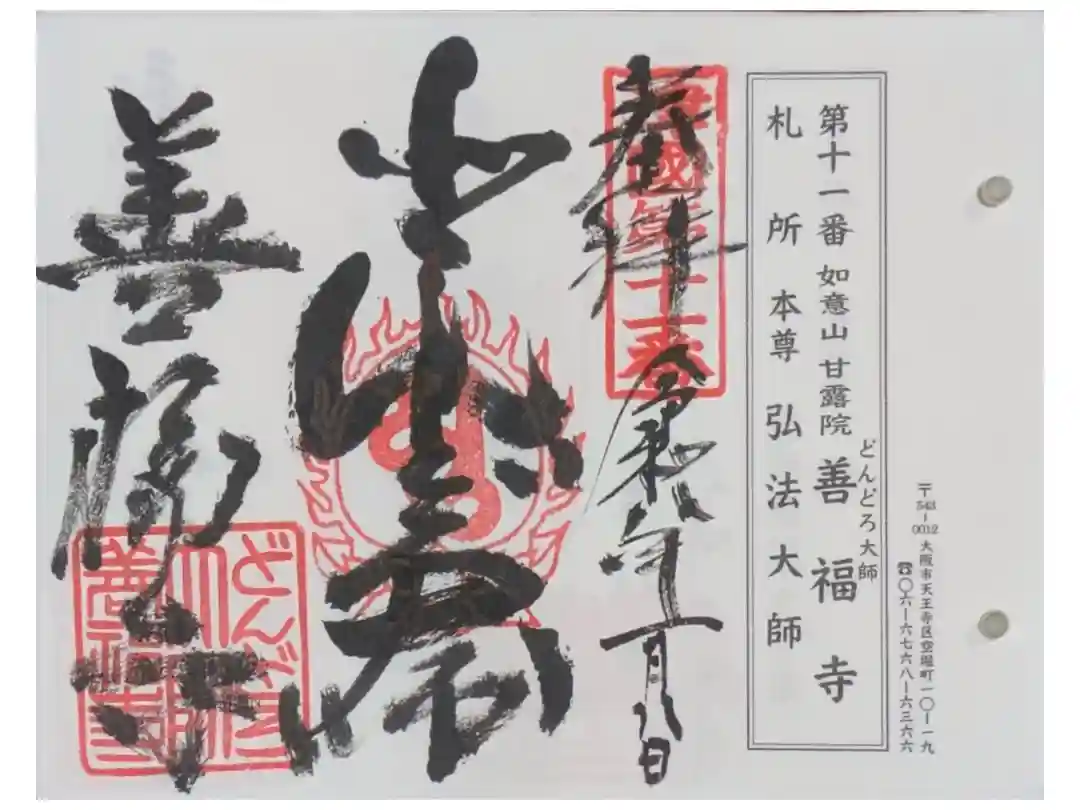 〒543-0012 大阪市天王寺区空堀町一〇-一九
☎〇六-六七六八-六三六六
どんどろ大師
第十一番 如意山 甘露院 善福寺
札所本尊 弘法大師
國第十一番
奉拝 令和八年一月八日
善福寺
どんどろ
大師
善福寺